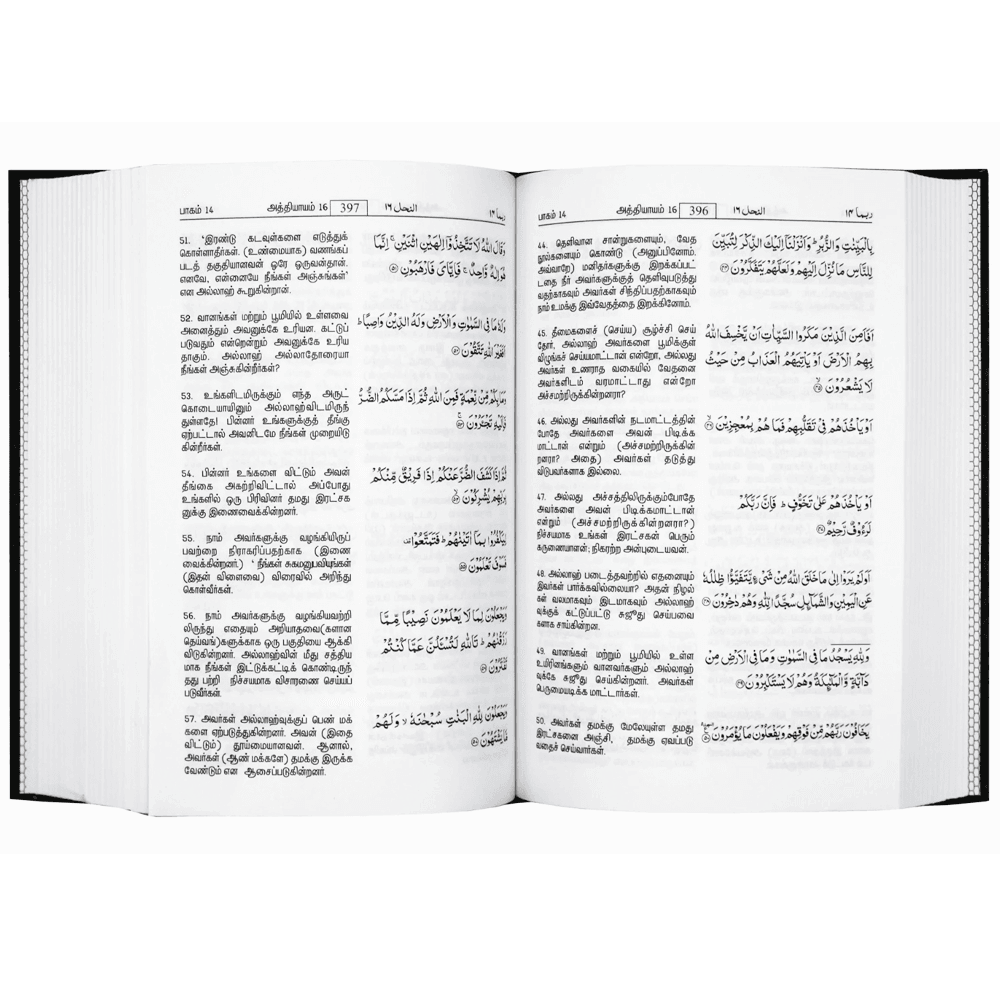 பாகம் 14 அத்தியாயம் 16 396 النحل ١٦ ربما ١٤
44. தெளிவான சான்றுகளையும், வேத
நூல்களையும் கொண்டு (அனுப்பினோம்.
அவ்வாறே) மனிதர்களுக்கு இறக்கப்பட்
டதை நீர் அவர்களுக்குத் தெளிவுபடுத்து
வதற்காகவும் அவர்கள் சிந்திப்பதற்காகவும்
நாம் உமக்கு இவ்வேதத்தை இறக்கினோம்.
بِالْبَيِّنٰتِ وَالزُّبُرِ ؕ وَاَنْزَلْنَاۤ اِلَيْكَ الذِّكْرَ لِتُبَيِّنَ
لِلنَّاسِ مَا نُزِّلَ اِلَيْهِمْ وَلَعَلَّهُمْ يَتَفَكَّرُوْنَ ۝٤٤
45. தீமைகளைச் (செய்ய) சூழ்ச்சி செய்
தோர், அல்லாஹ் அவர்களை பூமிக்குள்
விழுங்கச் செய்யமாட்டான் என்றோ, அல்லது
அவர்கள் உணராத வகையில் வேதனை
அவர்களிடம் வரமாட்டாது என்றோ
அச்சமற்றிருக்கின்றனரா?
اَفَاَمِنَ الَّذِيْنَ مَكَرُوا السَّيِّاٰتِ اَنْ يَّخْسِفَ اللّٰهُ
بِهِمُ الْاَرْضَ اَوْ يَاْتِيَهُمُ الْعَذَابُ مِنْ حَيْثُ
لَا يَشْعُرُوْنَ ۝٤٥
46. அல்லது அவர்களின் நடமாட்டத்தின்
போதே அவர்களை அவன் பிடிக்க
மாட்டான் என்றும் (அச்சமற்றிருக்கின்
றனரா? அதை) அவர்கள் தடுத்து
விடுபவர்களாக இல்லை.
اَوْ يَاْخُذَهُمْ فِيْ تَقَلُّبِهِمْ فَمَا هُمْ بِمُعْجِزِيْنَ ۝٤٦
47. அல்லது அச்சத்திலிருக்கும்போதே
அவர்களை அவன் பிடிக்கமாட்டான்
என்றும் (அச்சமற்றிருக்கின்றனரா?)
நிச்சயமாக உங்கள் இரட்சகன் பெரும்
கருணையாளன்; நிகரற்ற அன்புடையவன்.
اَوْ يَاْخُذَهُمْ عَلٰى تَخَوُّفٍ ؕ فَاِنَّ رَبَّكُمْ
لَرَءُوْفٌ رَّحِيْمٌ ۝٤٧
48. அல்லாஹ் படைத்தவற்றில் எதனையும்
இவர்கள் பார்க்கவில்லையா? அதன் நிழல்
கள் வலமாகவும் இடமாகவும் அல்லாஹ்
வுக்குக் கட்டுப்பட்டு சுஜூது செய்பவை
களாக சாய்கின்றன.
اَوَلَمْ يَرَوْا اِلٰى مَا خَلَقَ اللّٰهُ مِنْ شَيْءٍ يَّتَفَيَّؤُا ظِلٰلُهٗ
عَنِ الْيَمِيْنِ وَالشَّمَآئِلِ سُجَّدًا لِّلّٰهِ وَهُمْ دٰخِرُوْنَ ۝٤٨
49. வானங்கள் மற்றும் பூமியில் உள்ள
உயிரினங்களும் வானவர்களும் அல்லாஹ்
வுக்கே சுஜூது செய்கின்றனர். அவர்கள்
பெருமையடிக்க மாட்டார்கள்.
وَلِلّٰهِ يَسْجُدُ مَا فِي السَّمٰوٰتِ وَمَا فِي الْاَرْضِ مِنْ
دَآبَّةٍ وَّالْمَلٰٓئِكَةُ وَهُمْ لَا يَسْتَكْبِرُوْنَ ۝٤٩
50. அவர்கள் தமக்கு மேலேயுள்ள தமது
இரட்சகனை அஞ்சி, தமக்கு ஏவப்படு
வதைச் செய்வார்கள்.
يَخَافُوْنَ رَبَّهُمْ مِّنْ فَوْقِهِمْ وَيَفْعَلُوْنَ مَا يُؤْمَرُوْنَ ۝٥٠
பாகம் 14 அத்தியாயம் 16 397 النحل ١٦ ربما ١٤
51. 'இரண்டு கடவுள்களை எடுத்துக்
கொள்ளாதீர்கள். (உண்மையாக) வணங்கப்
படத் தகுதியானவன் ஒரே ஒருவன்தான்.
எனவே, என்னையே நீங்கள் அஞ்சுங்கள்'
என அல்லாஹ் கூறுகின்றான்.
وَقَالَ اللّٰهُ لَا تَتَّخِذُوْۤا اِلٰهَيْنِ اثْنَيْنِ ۚ اِنَّمَا
هُوَ اِلٰهٌ وَّاحِدٌ ۚ فَاِيَّايَ فَارْهَبُوْنِ ۝٥١
52. வானங்கள் மற்றும் பூமியில் உள்ளவை
அனைத்தும் அவனுக்கே உரியன. கட்டுப்
படுவதும் என்றென்றும் அவனுக்கே உரிய
தாகும். அல்லாஹ் அல்லாதோரையா
நீங்கள் அஞ்சுகின்றீர்கள்?
وَلَهٗ مَا فِي السَّمٰوٰتِ وَالْاَرْضِ وَلَهُ الدِّيْنُ وَاصِبًا ؕ
اَفَغَيْرَ اللّٰهِ تَتَّقُوْنَ ۝٥٢
53. உங்களிடமிருக்கும் எந்த அருட்
கொடையாயினும் அல்லாஹ்விடமிருந்
துள்ளதே! பின்னர் உங்களுக்குத் தீங்கு
ஏற்பட்டால் அவனிடமே நீங்கள் முறையிடு
கின்றீர்கள்.
وَمَا بِكُمْ مِّنْ نِّعْمَةٍ فَمِنَ اللّٰهِ ثُمَّ اِذَا مَسَّكُمُ الضُّرُّ
فَاِلَيْهِ تَجْئَرُوْنَ ۝٥٣
54. பின்னர் உங்களை விட்டும் அவன்
தீங்கை அகற்றிவிட்டால் அப்போது
உங்களில் ஒரு பிரிவினர் தமது இரட்சக
னுக்கு இணைவைக்கின்றனர்.
ثُمَّ اِذَا كَشَفَ الضُّرَّ عَنْكُمْ اِذَا فَرِيْقٌ مِّنْكُمْ
بِرَبِّهِمْ يُشْرِكُوْنَ ۝٥٤
55. நாம் அவர்களுக்கு வழங்கியிருப்
பவற்றை நிராகரிப்பதற்காக (இணை
வைக்கின்றனர்.) ' நீங்கள் சுகமனுபவியுங்கள்
(இதன் விளைவை) விரைவில் அறிந்து
கொள்வீர்கள்.
لِيَكْفُرُوْا بِمَاۤ اٰتَيْنٰهُمْ ؕ فَتَمَتَّعُوْا
فَسَوْفَ تَعْلَمُوْنَ ۝٥٥
56. நாம் அவர்களுக்கு வழங்கியவற்றி
லிருந்து எதையும் அறியாதவை(களான
தெய்வங்)களுக்காக ஒரு பகுதியை ஆக்கி
விடுகின்றனர். அல்லாஹ்வின் மீது சத்திய
மாக நீங்கள் இட்டுக்கட்டிக் கொண்டிருந்
தது பற்றி நிச்சயமாக விசாரணை செய்யப்
படுவீர்கள்.
وَيَجْعَلُوْنَ لِمَا لَا يَعْلَمُوْنَ نَصِيْبًا مِّمَّا
رَزَقْنٰهُمْ ؕ تَاللّٰهِ لَتُسْئَلُنَّ عَمَّا كُنْتُمْ
تَفْتَرُوْنَ ۝٥٦
57. அவர்கள் அல்லாஹ்வுக்குப் பெண் மக்
களை ஏற்படுத்துகின்றனர். அவன் (இதை
விட்டும்) தூய்மையானவன். ஆனால்,
அவர்கள் (ஆண் மக்களே) தமக்கு இருக்க
வேண்டும் என ஆசைப்படுகின்றனர்.
وَيَجْعَلُوْنَ لِلّٰهِ الْبَنٰتِ سُبْحٰنَهٗ ۙ وَلَهُمْ
مَّا يَشْتَهُوْنَ ۝٥٧